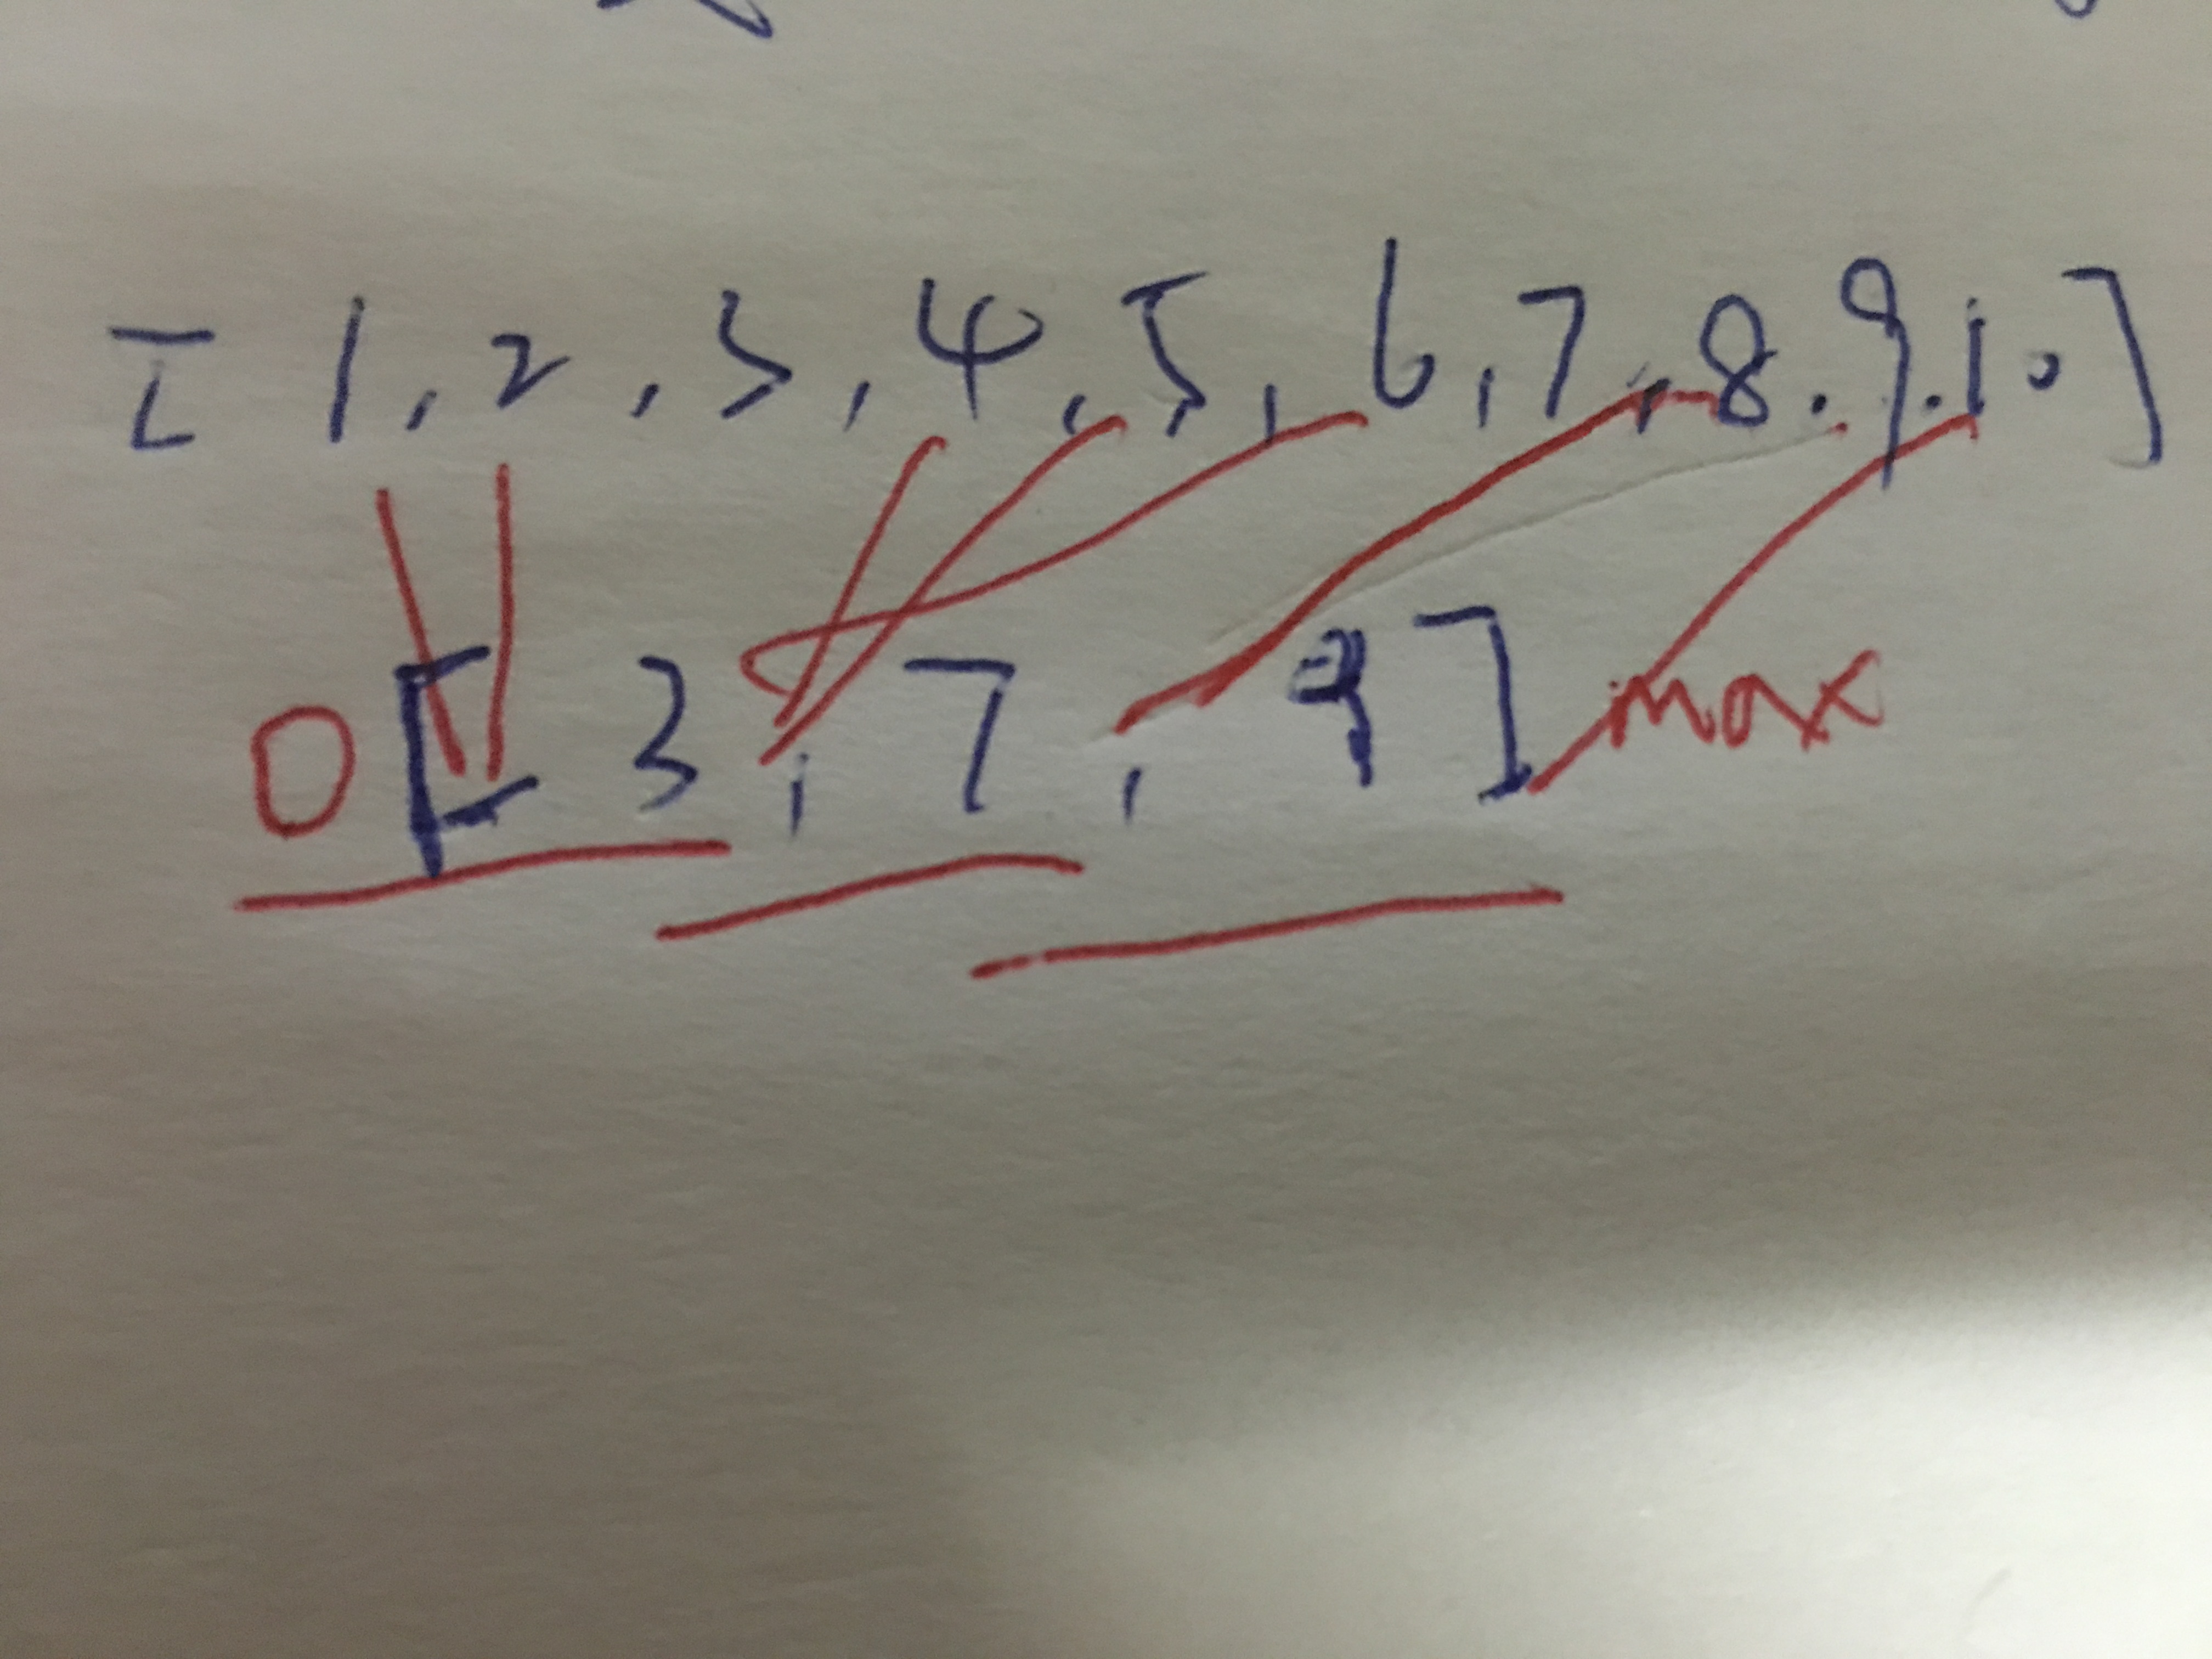 [1, 2, 3, 4, 5, 6, 7, 8, 9, 10]
0 [3, 7, 9] max